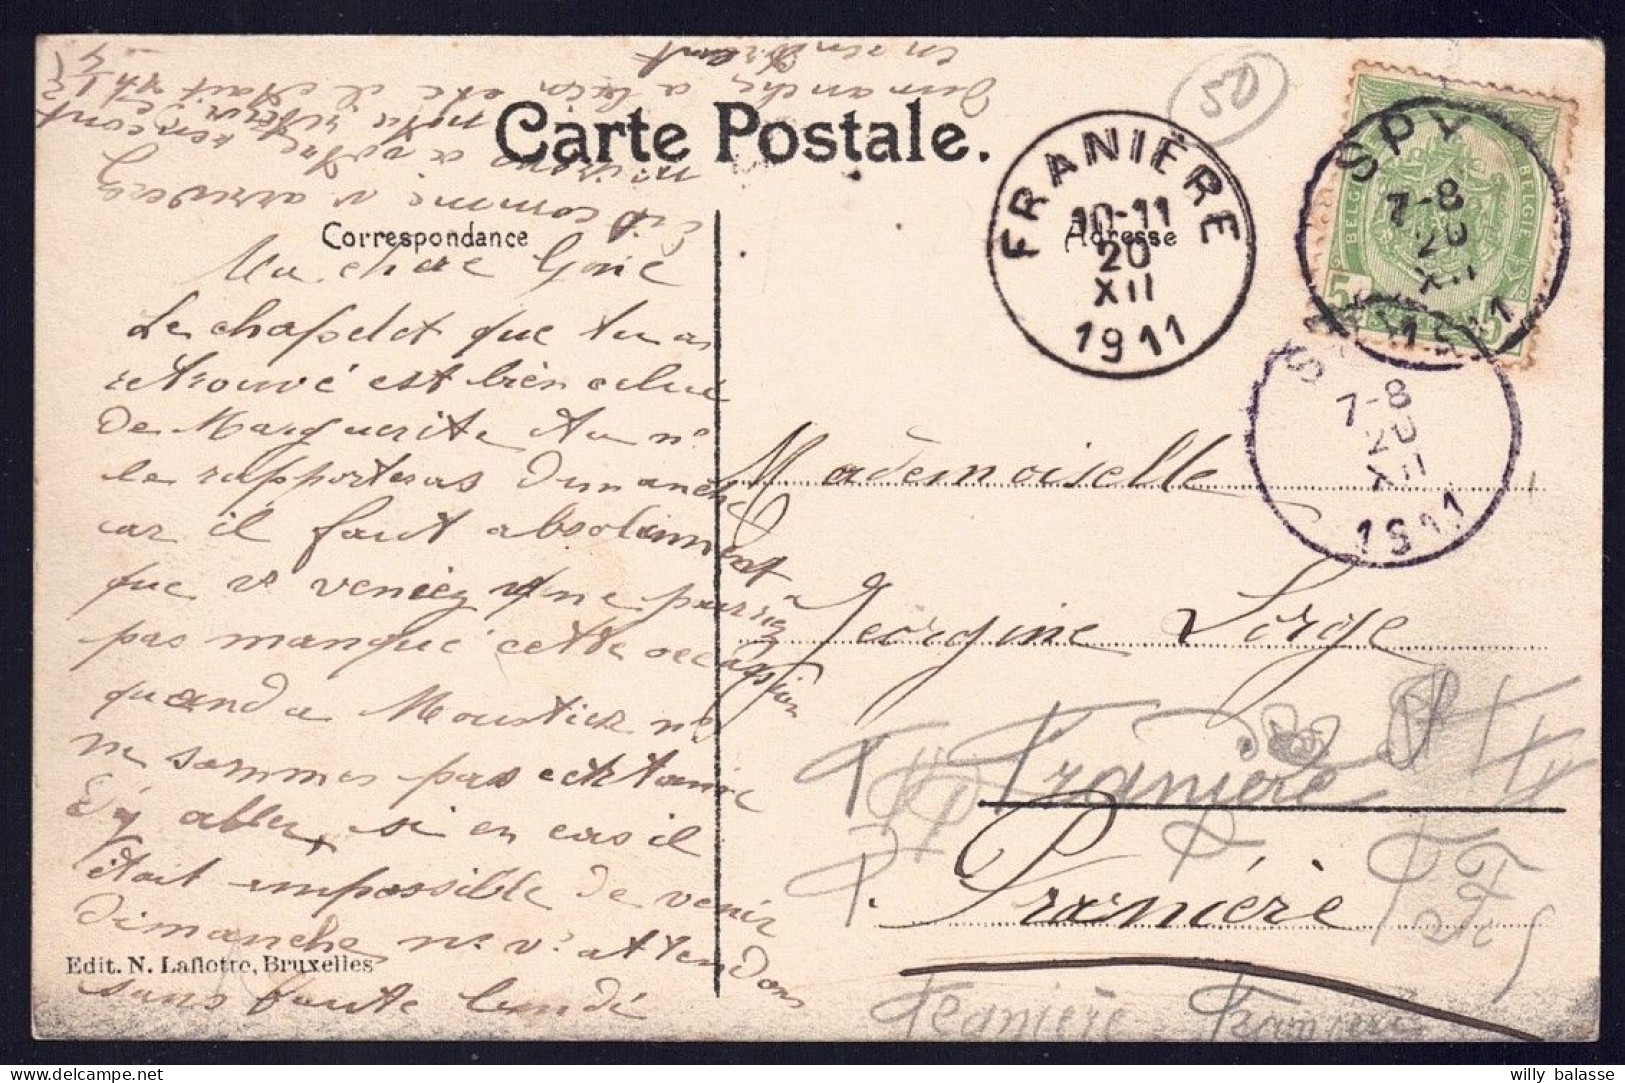 en rendrent
dimanche, a
Carte Postale.
50
FRANIÈRE
10-11
20
XII
1911
SPY
7-8
20
XII
1911
BELGIQUE
BELGIE
5
5
7-8
20
XII
1911
Correspondance
Adresse
Ma chère Gorie
Le chapelet que tu as
retrouvé est bien celui
de Marguerite tu n°
le rapporteras dimanche
car il faut absolument
que v. veniez ne
pas manqué cette occasion
quand a Moustier n°
ne sommes pas certaine
d'y aller, si en cas il
était impossible de venir
dimanche n° v° attendons
sans faute lundi
Mademoiselle
Georgine Lorge
Franière
Franière
Franière Franière
Edit. N. Laflotte, Bruxelles
willy balasse